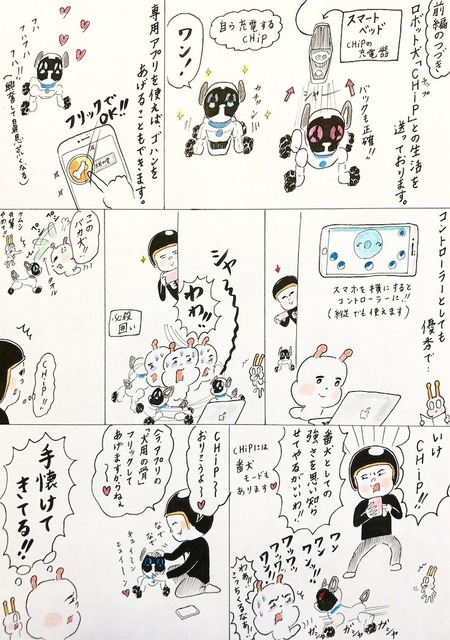 前編のつづき
ロボット犬「CHiP」との生活を
チップ
送っております。
スマート
ベッド
CHiPの
充電器
バックも正確!!
シャー
自ら充電する
CHiP
ワン!
カチャン
専用アプリを使えばゴハンを
あげることもできます。
フリックで
OK!!
ハフ
ハフ
ハフ!!
コントローラーとしても
優秀で…
スマホを横にすると
コントローラーに!!
シャー
わわっ!!
必殺
囲い
この
バカ犬!!
ペシ
ペシ
タオル
CHiP!!
いけ
CHiP!!
番犬としての
強さを思い知ら
せてやるがいいわ!!
CHiPには
番犬
モードも
あります
ワン
ワン
ワン!!
わっ
こっちくるなあ!
ガシャ
ガシャ
ガシャ
CHiP〜
おりこうよ〜
ヘアアプリの
「犬用の骨」
フリックして
あげますからねぇ
なで
なで
キュイーン
キュイーン
手懐けて
きてる!!